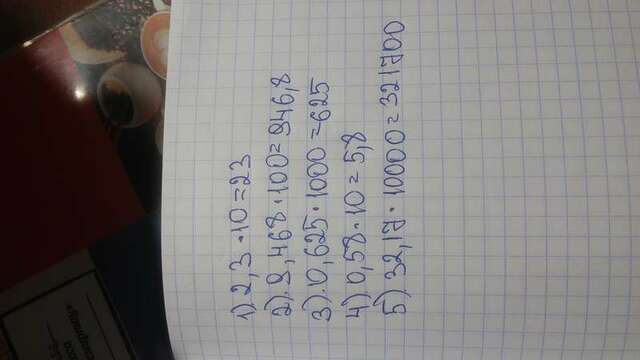 1) 2,3 · 10 = 23
2) 9,468 · 100 = 946,8
3) 0,625 · 1000 = 625
4) 0,58 · 10 = 5,8
5) 32,17 · 10000 = 321700